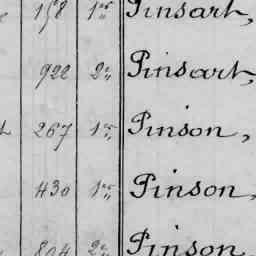 158 1er Pinsart,
922 2e Pinsart,
267 1er Pinson,
430 1er Pinson,
804 2e Pinson